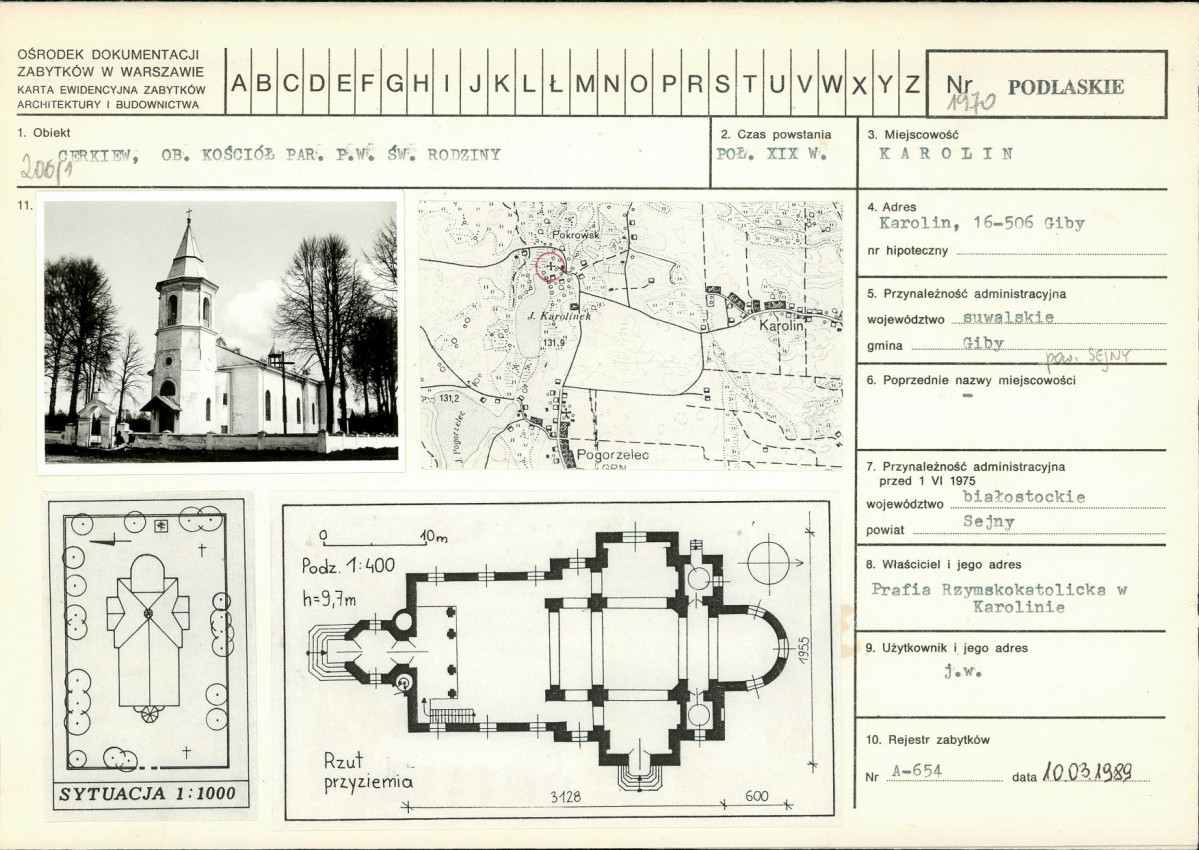 OŚRODEK DOKUMENTACJI
ZABYTKÓW W WARSZAWIE
KARTA EWIDENCYJNA ZABYTKÓW
ARCHITEKTURY I BUDOWNICTWA
A B C D E F G H I J K L Ł M N O P R S T U V W X Y Z
Nr 1970 PODLASKIE
1. Obiekt
CERKIEW, OB. KOŚCIÓŁ PAR. P.W. ŚW. RODZINY
206/1
2. Czas powstania
POŁ. XIX W.
3. Miejscowość
KAROLIN
4. Adres
Karolin, 16-506 Giby
nr hipoteczny
5. Przynależność administracyjna
województwo suwalskie
gmina Giby
pow. SEJNY
6. Poprzednie nazwy miejscowości
–
7. Przynależność administracyjna
przed 1 VI 1975
województwo białostockie
powiat Sejny
8. Właściciel i jego adres
Prafia Rzymskokatolicka w
Karolinie
9. Użytkownik i jego adres
j.w.
10. Rejestr zabytków
Nr A-654 data 10.03.1989
11.
Pokrowsk
J. Karolinek
131,9
Karolin
131,2
J. Pogorzelec
Pogorzelec
GRN
SYTUACJA 1:1000
0 10m
Podz. 1:400
h=9,7m
1955
Rzut
przyziemia
3128 600